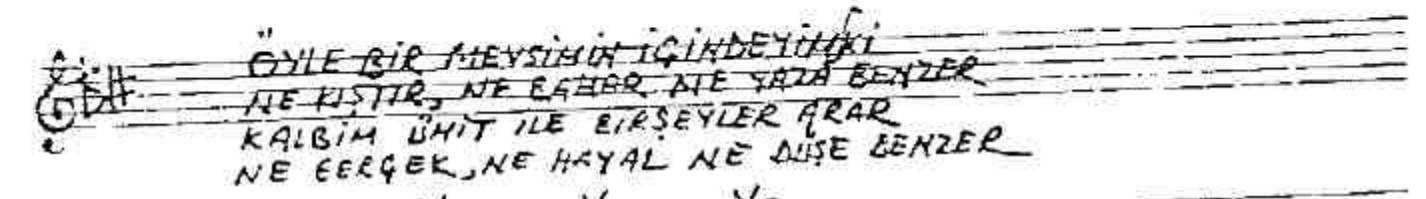 ÖYLE BİR MEVSİMİN İÇİNDEYİMKİ
NE KIŞTIR, NE BAHAR NE YAZA BENZER
KALBİM ÜMİT İLE BİRŞEYLER ARAR
NE GERÇEK, NE HAYAL NE DÜŞE BENZER